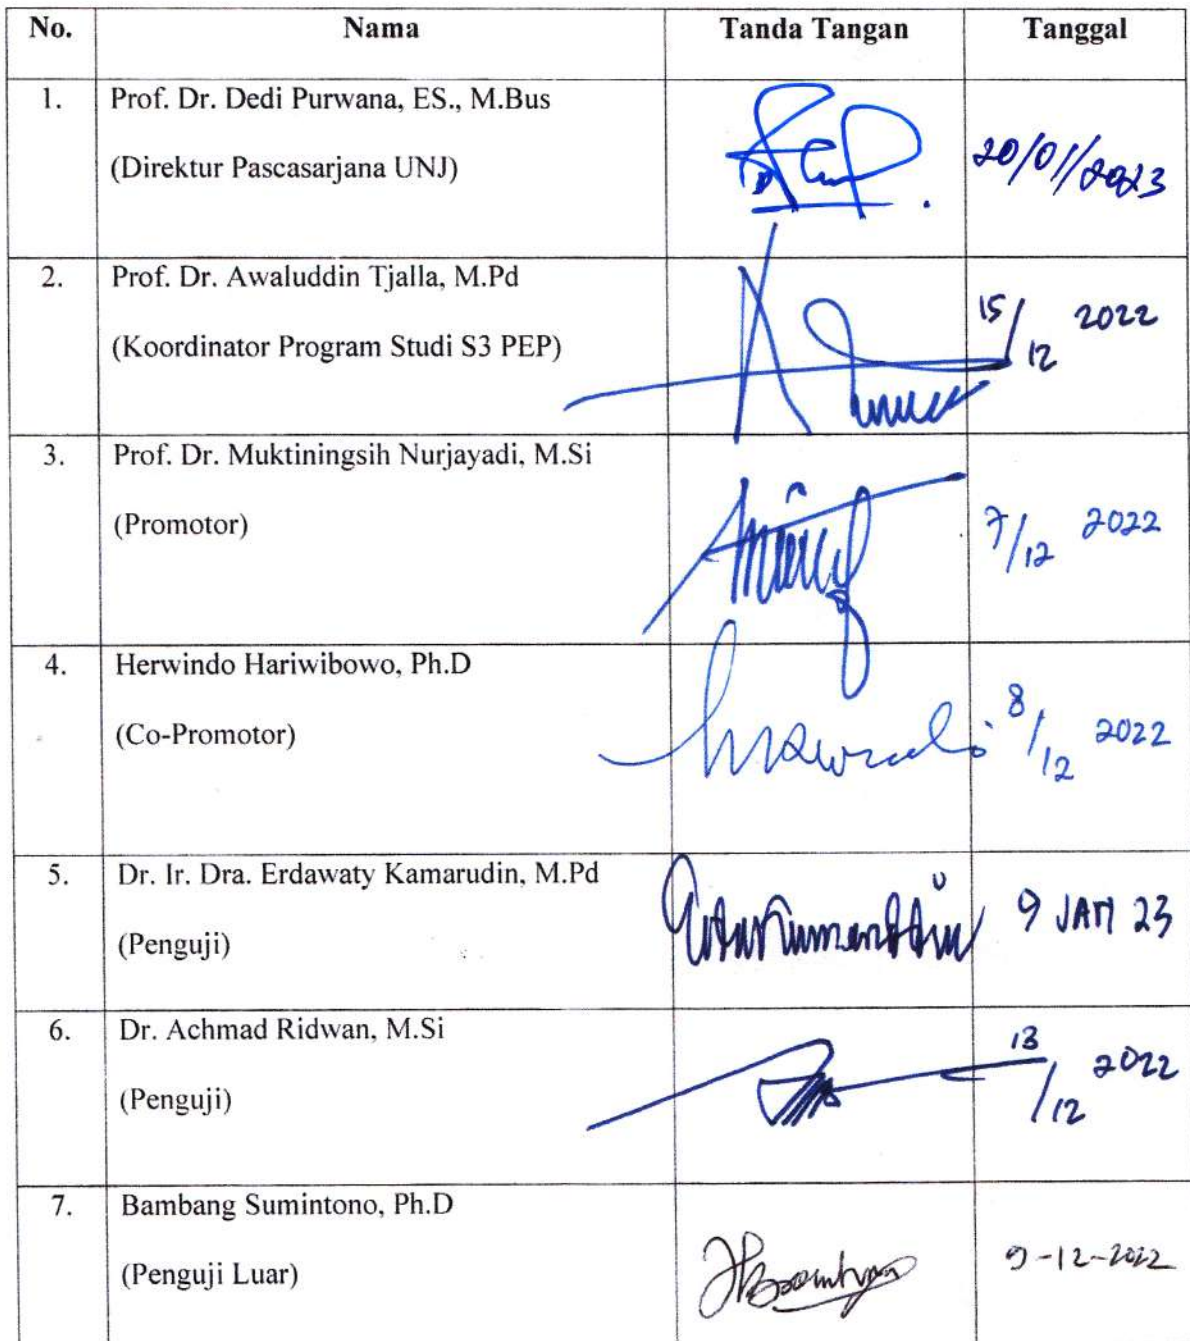 No. Nama Tanda Tangan Tanggal
1. Prof. Dr. Dedi Purwana, ES., M.Bus
(Direktur Pascasarjana UNJ)
20/01/2023
2. Prof. Dr. Awaluddin Tjalla, M.Pd
(Koordinator Program Studi S3 PEP)
15/12 2022
3. Prof. Dr. Muktiningsih Nurjayadi, M.Si
(Promotor)
7/12 2022
4. Herwindo Hariwibowo, Ph.D
(Co-Promotor)
8/12 2022
5. Dr. Ir. Dra. Erdawaty Kamarudin, M.Pd
(Penguji)
9 JAN 23
6. Dr. Achmad Ridwan, M.Si
(Penguji)
13/12 2022
7. Bambang Sumintono, Ph.D
(Penguji Luar)
9-12-2022